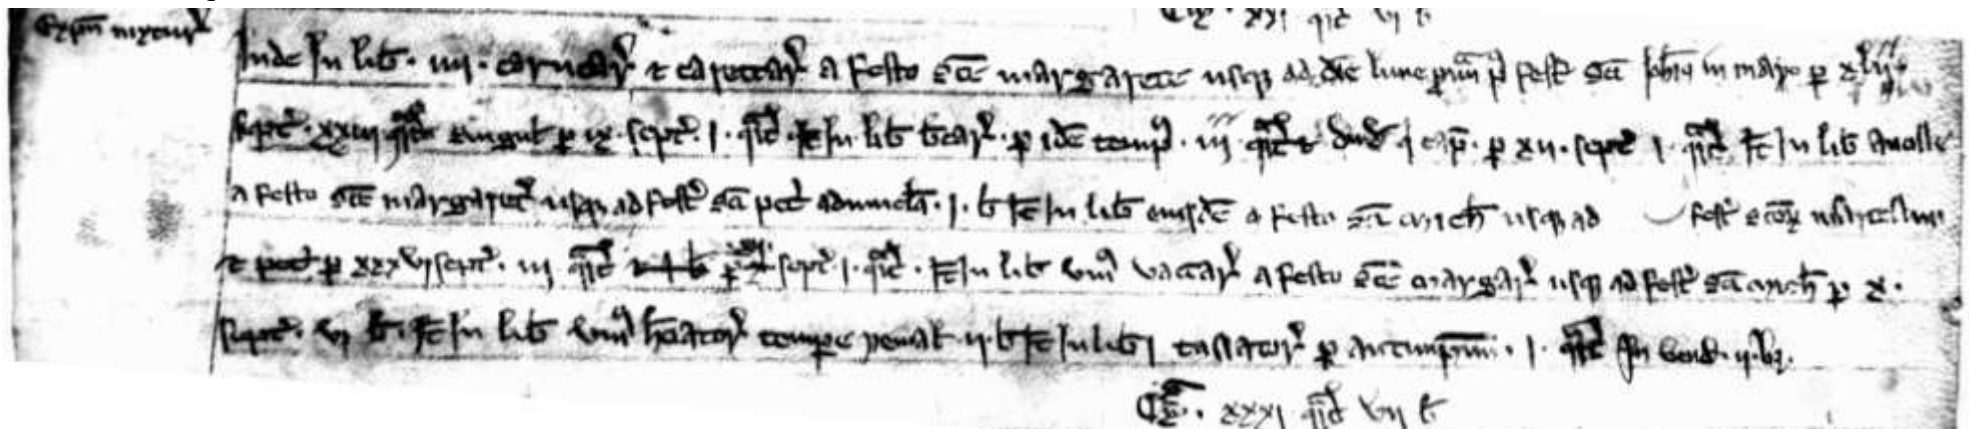 xxj q̄rt vj b
Expn̄ mixtur'
Inde In lib . iiij . carucar' & carettar' a festo sc̄e margarete usq ad diē lune prim̄ p' fest' sc̄i Joh̄is in mayo p xlij
sept' . xxiij q̄rt singul' p ix . sept' . j . q̄rt . It̄ In lib bercar' . p idē temp' . iij q̄rt & dim̄ q' cap̄ . p xij . sept' j . q̄rt It̄ In lib
a festo sc̄e margaret' usq ad fest' sc̄i pet' aduincl'a . j . b It̄ In lib eiusdē a festo sc̄i mich̄ usq ad fest'
p xxxvj sept' . iij q̄rt sept' . j . q̄rt . It̄ In lib uni' vaccar' a festo sc̄e margar' usq ad fest' sc̄i mich̄ p x .
sept' . vj b . It̄ In lib uni' herciator' tempore yemal' . ij . b It̄ In lib j tassator' p autumpnum . j . q̄rt In vend' . ij . bz .
xxxj q̄rt vij b